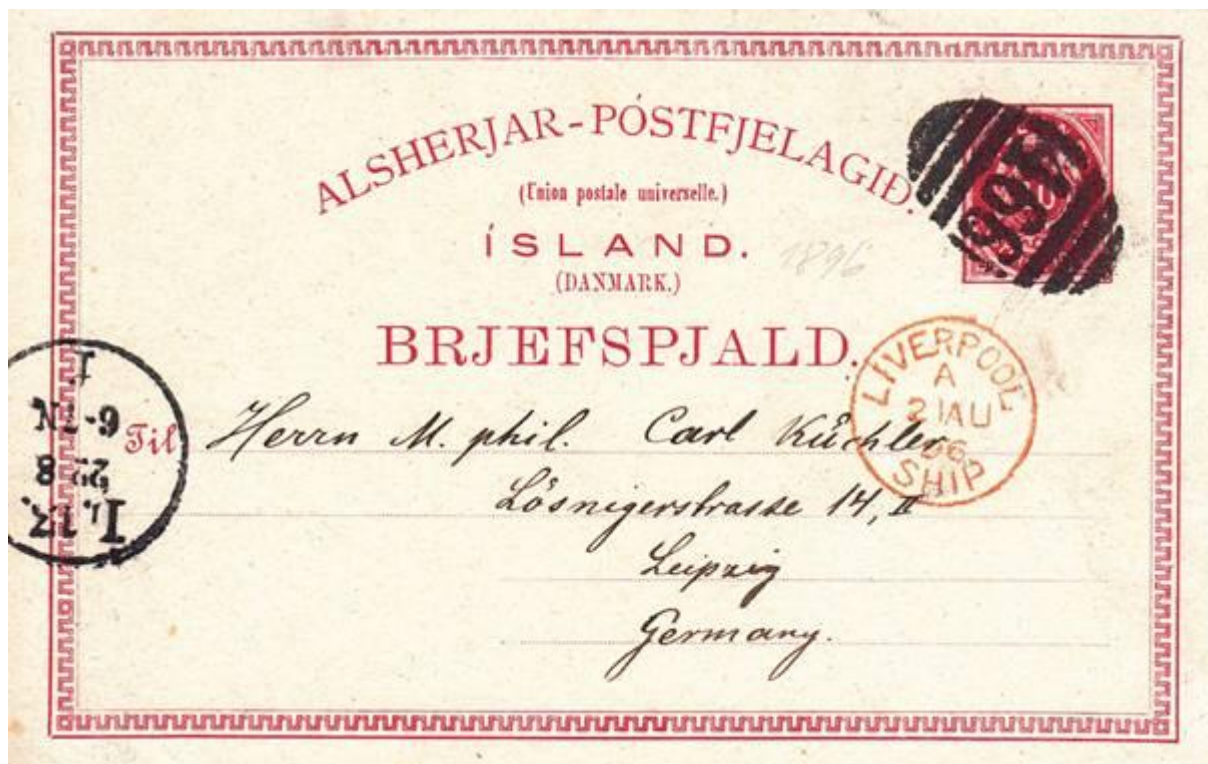 ALSHERJAR-PÓSTFJELAGIÐ.
(Union postale universelle.)
ÍSLAND.
(DANMARK.)
1896
BRJEFSPJALD.
LIVERPOOL
A
21AU
96
SHIP
466
Til Herrn M. phil. Carl Küchler
Lösnigerstrasse 14, II
Leipzig
Germany.
L. 13.
22 8
6-7N